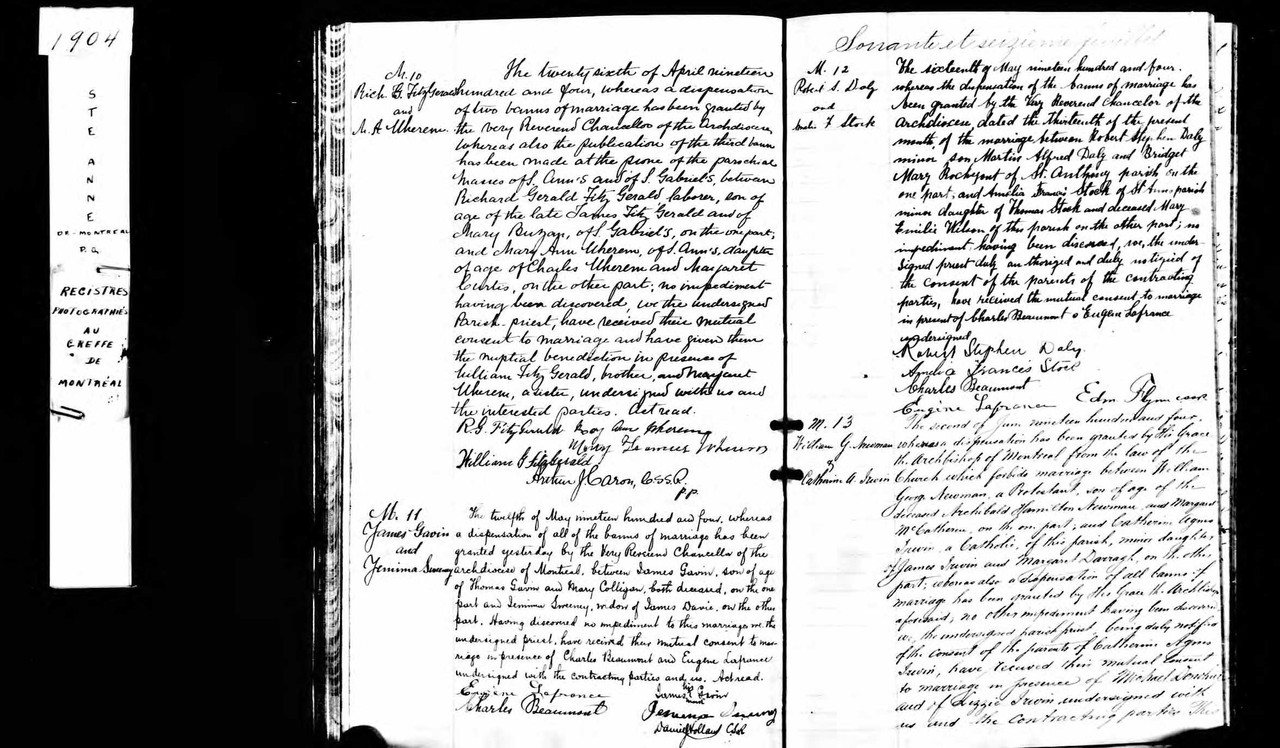 1904
STE ANNE
DE-MONTREAL
P.Q.
REGISTRES
PHOTOGRAPHIÉS
AU
GREFFE
DE
MONTRÉAL
M. 10
Rich. G. FitzGerald
and
M. A. Wherem
The twenty sixth of April nineteen
hundred and four, whereas a dispensation
of two banns of marriage has been granted by
the Very Reverend Chancellor of the Archdiocese
whereas also the publication of the third bann
has been made at the prone of the parochial
Masses of S. Ann's and of S. Gabriel's, between
Richard Gerald Fitz Gerald laborer, son of
age of the late James Fitz Gerald and of
Mary, of S. Gabriel's, on the one part;
and Mary Ann Wherem, of S. Ann's, daughter
of age of Charles Wherem and Margaret
Curtis, on the other part; no impediment
having been discovered, we the undersigned
Parish priest, have received their mutual
consent to marriage and have given them
the nuptial benediction in presence of
William Fitz Gerald, brother, and Margaret
Wherem, sister, undersigned with us and
the interested parties. Act read.
R. G. FitzGerald
Mary Frances
William FitzGerald
Arthur J Caron, C.SS.R.
P.P.
M. 11
James Gavin
and
Jemima Sweeny
The twelfth of May nineteen hundred and four, whereas
a dispensation of all of the banns of marriage has been
granted yesterday by the Very Revd Chancellor of the
archdiocese of Montreal, between James Gavin, son of age
of Thomas Gavin and Mary Colligan, both deceased, on the one
part and Jemima Sweeney, widow of James Davie, on the other
part. Having discovered no impediment to this marriage, we the
undersigned priest, have received their mutual consent to mar-
riage in presence of Charles Beaumont and Eugène Lafrance
undersigned with the contracting parties and us. Act read.
Eugène Lafrance
Charles Beaumont
James Gavin
his
mark
Jemima Sweeny
Daniel Holland C.SS.R
Soixante et seizième feuillet
M. 12
Robert S. Daly
and
F Stock
The sixteenth of May nineteen hundred and four.
whereas the dispensation of the banns of marriage has
been granted by the Very Reverend Chancellor of the
Archdiocese, dated the thirteenth of the present
month, of the marriage between Robert Stephen Daly
minor son Martin Alfred Daly and Bridget
Mary of St. Anthony parish on the
one part, and Amelia Francis Stock of St Anns parish
minor daughter of Thomas Stock and deceased Mary
Emilie Wilson of this parish on the other part; no
impediment having been discovered, we, the under-
signed priest duly authorized and duly notified of
the consent of the parents of the contracting
parties, have received the mutual consent to marriage
in present of Charles Beaumont & Eugène Lafrance
undersigned
Robert Stephen Daly
Amelia Frances Stock
Charles Beaumont
Eugène Lafrance
Edm Flynn C.SS.R
M. 13
William G. Newman
&
Catherine A. Irwin
The second of June nineteen hundred and four,
whereas a dispensation has been granted by His Grace
the Archbishop of Montreal from the law of the
Church which forbids marriage between William
George Newman, a Protestant, son of age of the
deceased Archibald Hamilton Newman, and Margaret
on the one part; and Catherine Agnes
Irwin, a Catholic, of this parish, minor daughter
of James Irwin and Margaret Darragh, on the other
part; whereas also a dispensation of all banns of
marriage has been granted by His Grace the Archbishop
aforesaid; no other impediment having been discovered
we, the undersigned parish priest, being duly notified
of the consent of the parents of Catherine Agnes
Irwin, have received their mutual consent
to marriage in presence of Michael
and of Lizzie Irwin undersigned with
us and the contracting parties